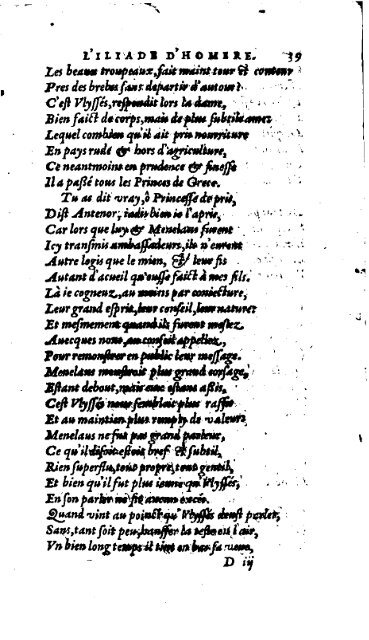 L'ILIADE D'HOMERE. 39
Les beaux troupeaux, fait maint tour & contour
Pres des brebis sans departir d'autour?
C'est Vlyssés, respondit lors la dame,
Bien faict de corps, mais de plus subtile ame:
Lequel combien qu'il ait pris nourriture
En pays rude & hors d'agriculture,
Ce neantmoins en prudence & finesse
Il a passé tous les Princes de Grece.
Tu as dit vray, ô Princesse de pris,
Dist Antenor, iadis bien ie l'apris,
Car lors que luy & Menelaus furent
Icy transmis ambassadeurs, ils n'eurent
Autre logis que le mien, & leur fis
Autant d'acueil qu'eusse faict à mes fils.
Là ie cogneuz, au moins par coniecture,
Leur grand esprit, leur conseil, leur nature:
Et mesmement quand ils furent meslez
Auecques nous, au conseil appellez,
Pour remonstrer en public leur message.
Menelaus monstroit plus grand corsage,
Estant debout, mais eux estans assis,
Cest Vlyssés nous sembloit plus rassis
Et au maintien plus remply de valeur:
Menelaus ne fut pas grand parleur,
Ce qu'il disoit estoit bref & subtil,
Rien superflu, tout propre, tout gentil,
Et bien qu'il fut plus ieune qu' Vlyssés,
En son parler ne fit aucun excés.
Quand vint au poinct qu'Vlyssés deust parler,
Sans, tant soit peu, hausser la teste en l'air,
Vn bien long temps il tint en bas sa veue,
D iij